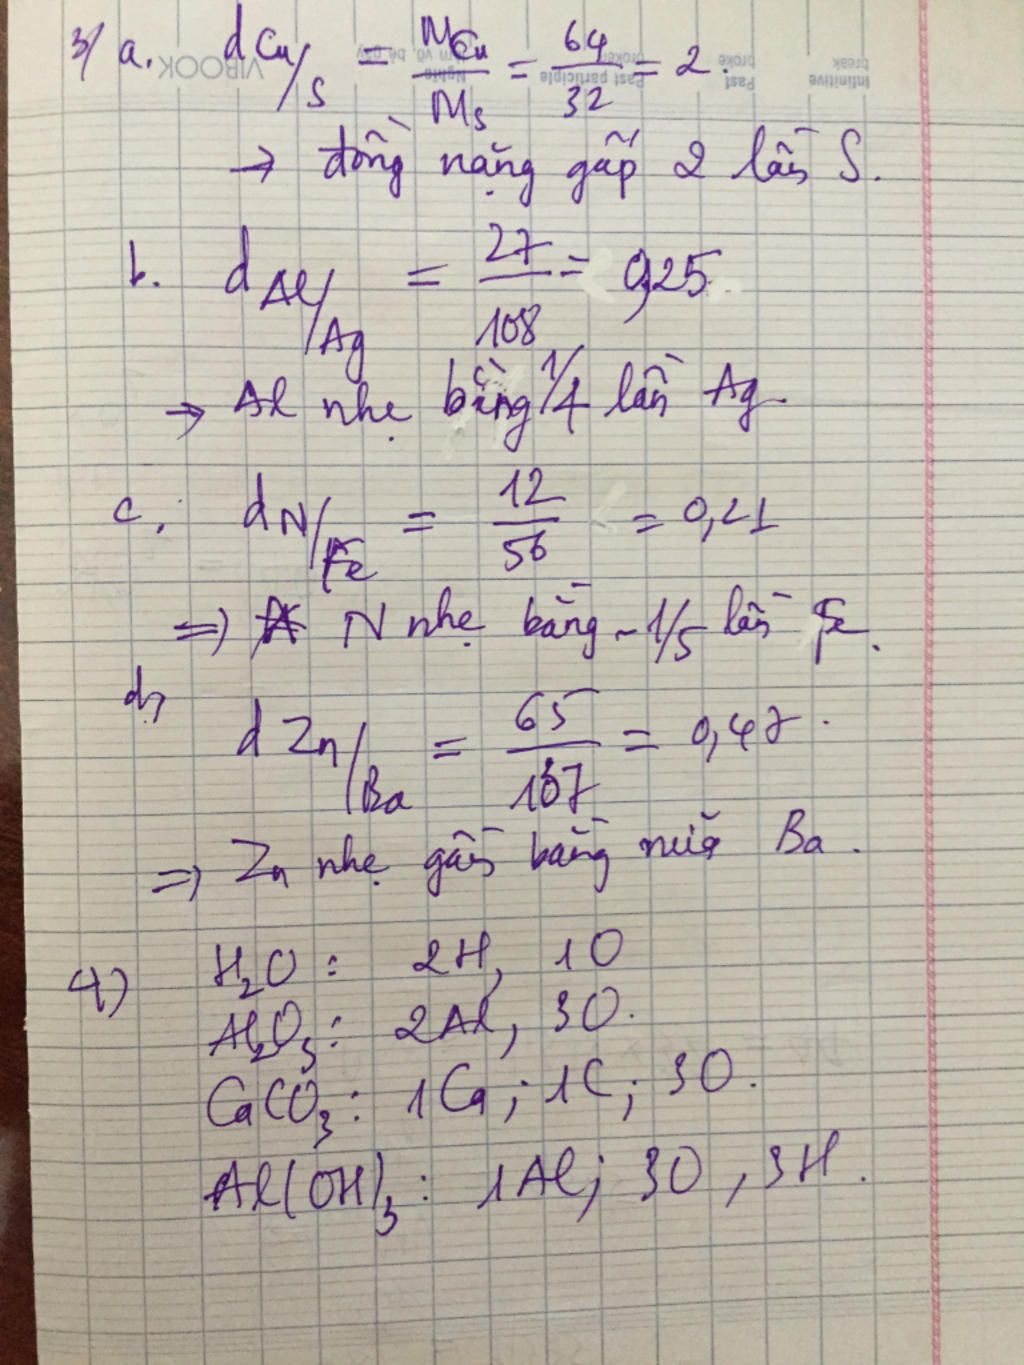 3/ a. d Cu/S = MCu/MS = 64/32 = 2.
→ đồng nặng gấp 2 lần S.
b. d Al/Ag = 27/108 = 0,25
→ Al nhẹ bằng 1/4 lần Ag.
c. d N/Fe = 12/56 = 0,21
=> N nhẹ bằng ~ 1/5 lần Fe.
d, d Zn/Ba = 65/137 = 0,47.
=> Zn nhẹ gần bằng nửa Ba.
4) H₂O : 2H, 1O
Al₂O₃ : 2Al, 3O.
CaCO₃ : 1Ca ; 1C ; 3O.
Al(OH)₃ : 1Al ; 3O , 3H.
VIBOOK
Past participle
Past
broke
Infinitive
break